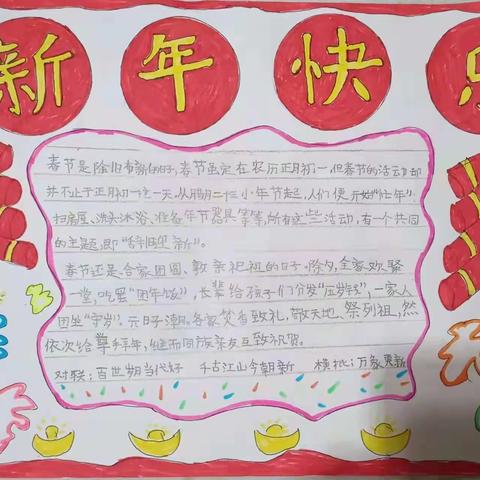 新年快乐
春节是除旧布新的日子,春节虽定在农历正月初一,但春节的活动却
并不止于正月初一这一天。从腊月二十三小年节起,人们便开始"忙年":
扫房屋、洗头沐浴、准备年节器具等等,所有这些活动,有一个共同
的主题,即"辞旧迎新"。
春节还是合家团圆、敦亲祀祖的日子。除夕,全家欢聚
一堂,吃罢"团年饭",长辈给孩子们分发"压岁钱",一家人
团坐"守岁"。元日子潮,各家焚香致礼,敬天地、祭列祖,然
依次给尊长拜年,继而同族亲友互致祝贺。
对联:百世岁月当代好 千古江山今朝新 横批:万象更新